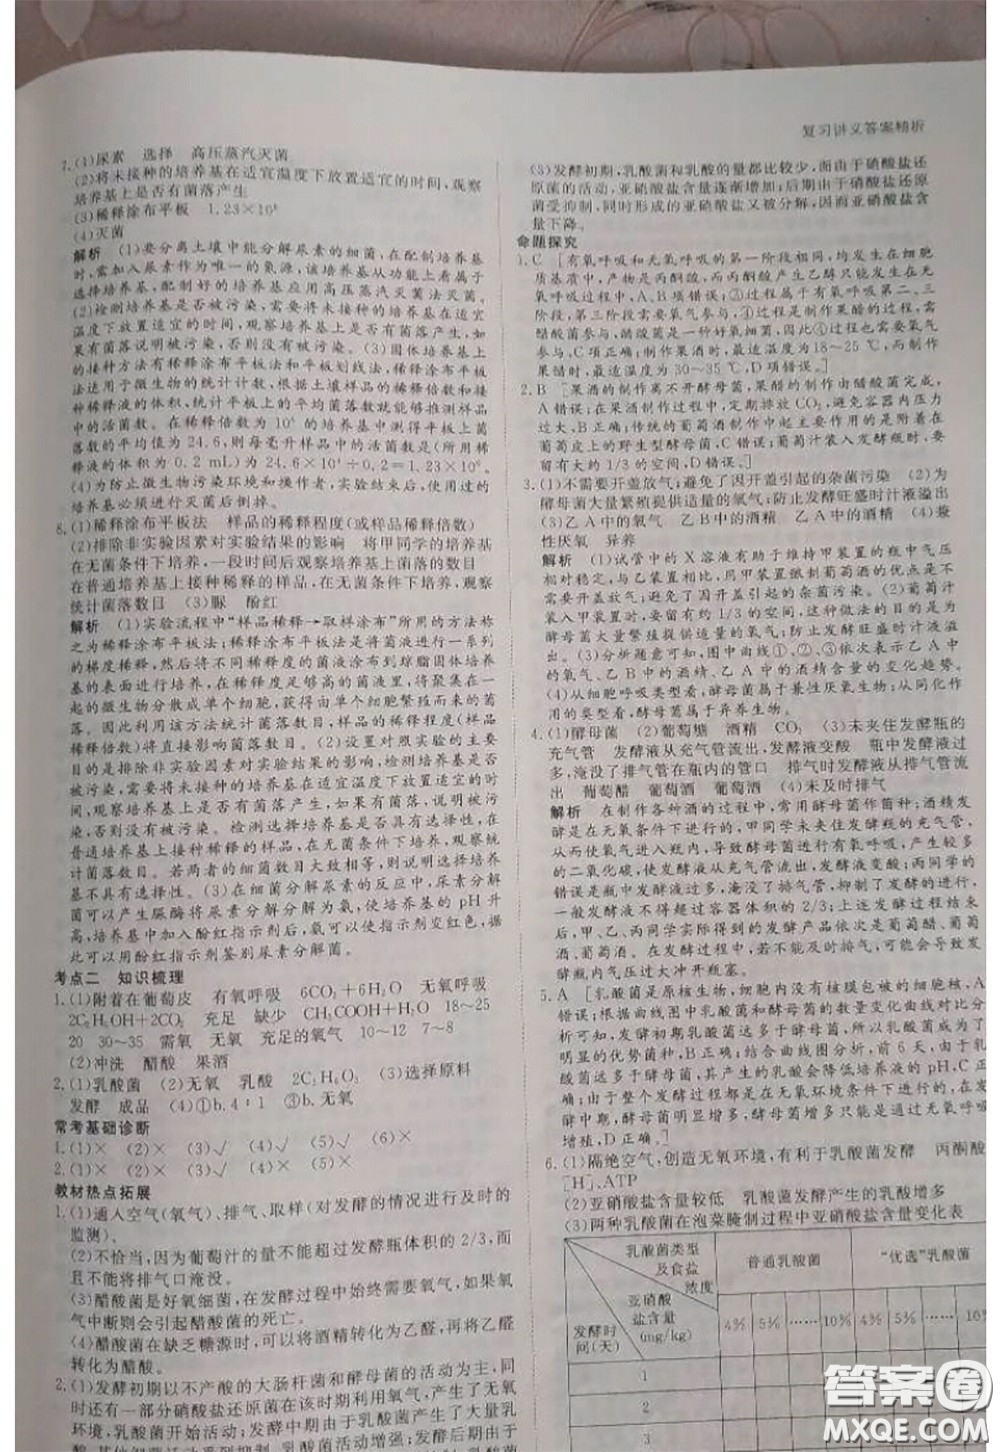 复习讲义答案精析
7.(1)尿素　选择　高压蒸汽灭菌
(2)将未接种的培养基在适宜温度下放置适宜的时间,观察
培养基上是否有菌落产生
(3)稀释涂布平板　1.23×10⁸
(4)灭菌
解析　(1)要分离土壤中能分解尿素的细菌,在配制培养基
时,需加入尿素作为唯一的氮源,该培养基从功能上看属于
选择培养基,配制好的培养基应用高压蒸汽灭菌法灭菌。
(2)检测培养基是否被污染,需要将未接种的培养基在适宜
温度下放置适宜的时间,观察培养基上是否有菌落产生,如
果有菌落说明被污染,否则没有被污染。(3)固体培养基上
接种方法有稀释涂布平板法和平板划线法,稀释涂布平板
法适用于微生物的统计计数,根据土壤样品的稀释倍数和接
种稀释液的体积,统计平板上的平均菌落数就能推测样品
中的活菌数。在稀释倍数为10⁶的培养基中测得平板上菌
落数的平均值为24.6,则每毫升样品中的活菌数是(所用稀
释液的体积为0.2 mL)为24.6×10⁶÷0.2=1.23×10⁸。
(4)为防止微生物污染环境和操作者,实验结束后,使用过的
培养基必须进行灭菌后倒掉。
8.(1)稀释涂布平板法　样品的稀释程度(或样品稀释倍数)
(2)排除非实验因素对实验结果的影响　将甲同学的培养基
在无菌条件下培养,一段时间后观察培养基上菌落的数目
在普通培养基上接种稀释的样品,在无菌条件下培养,观察
统计菌落数目　(3)脲　酚红
解析　(1)实验流程中“样品稀释→取样涂布”所用的方法称
之为稀释涂布平板法;稀释涂布平板法是将菌液进行一系列
的梯度稀释,然后将不同稀释度的菌液涂布到琼脂固体培养
基的表面进行培养,在稀释度足够高的菌液里,将聚集在一
起的微生物分散成单个细胞,获得由单个细胞繁殖而来的菌
落。因此利用该方法统计菌落数目,样品的稀释程度(样品
稀释倍数)将直接影响菌落数目。(2)设置对照实验的主要目
的是排除非实验因素对实验结果的影响,检测培养基是否被
污染,需要将未接种的培养基在适宜温度下放置适宜的时
间,观察培养基上是否有菌落产生,如果有菌落,说明被污
染,否则没有被污染。检测选择培养基是否具有选择性,在
普通培养基上接种稀释的样品,在无菌条件下培养,观察统
计菌落数目。若两者的细菌数目大致相等,则说明该培养基
不具有选择性。(3)在细菌对尿素的反应中,尿素分解
菌可以产生脲酶将尿素分解分解为氨,使培养基的pH升
高,在培养基中加入酚红指示剂后,氨使指示剂变红色,因
此可以用酚红指示剂鉴别尿素分解菌。
考点二　知识梳理
1.(1)附着在葡萄皮　有氧呼吸　6CO₂+6H₂O　无氧呼吸
2C₂H₅OH+2CO₂　充足　缺少　CH₃COOH+H₂O　18～25
20　30～35　需氧　无氧　充足的氧气　10～12　7～8
(2)冲洗　醋酸　果酒
2.(1)乳酸菌　(2)无氧　乳酸　2C₃H₆O₃　(3)选择原料
发酵　成品　(4)①b.4∶1　③b.无氧
常考基础诊断
1.(1)×　(2)×　(3)√　(4)×　(5)√　(6)×
2.(1)×　(2)×　(3)√　(4)×　(5)×
教材热点拓展
1.(1)通入空气(氧气)、排气、取样(对发酵的情况进行及时的
监测)。
(2)不恰当,因为葡萄汁的量不能超过发酵瓶体积的2/3,而
且不能将排气口淹没。
(3)醋酸菌是好氧细菌,在发酵过程中始终需要氧气,如果氧
气中断则会引起醋酸菌的死亡。
(4)醋酸菌在缺乏糖源时,可以将酒精转化为乙醛,再将乙醛
转化为醋酸。
2.(1)发酵初期以不产酸的大肠杆菌和酵母菌的活动为主,同
时还有一部分硝酸盐还原菌在该时期利用氧气,产生了无氧
环境,乳酸菌开始活动;发酵中期由于乳酸菌产生了大量乳
(3)发酵初期,乳酸菌和乳酸的量都比较少,而由于硝酸盐还
原菌的活动,亚硝酸盐含量逐渐增加;后期由于硝酸盐还原
菌受抑制,同时形成的亚硝酸盐又被分解,因而亚硝酸盐含
量下降。
命题探究
1.C　[有氧呼吸和无氧呼吸的第一阶段相同,均发生在细胞
质基质中,产物是丙酮酸,而丙酮酸产生乙醇只能发生在无
氧呼吸过程中,A、B项错误;③过程是有氧呼吸第二、三
阶段,第三阶段需要氧气参与,④过程是制作果醋的过程,需
醋酸菌参与,醋酸菌是一种好氧细菌,因此④过程也需要氧气
参与,C项正确;制作果酒时,最适温度为18～25 ℃,而制作
果醋时,最适温度为30～35 ℃,D项错误。]
2.B　[果酒的制作离不开酵母菌,果醋的制作由醋酸菌完成,
A错误;在果酒制作过程中,定期排放CO₂,避免容器内压力
过大,B正确;传统的葡萄酒制作中起主要作用的是附着在
葡萄皮上的野生型酵母菌,C错误;葡萄汁装入发酵瓶时,要
留有大约1/3的空间,D错误。]
3.(1)不需要开盖放气;避免了因开盖引起的杂菌污染　(2)为
酵母菌大量繁殖提供适量的氧气;防止发酵旺盛时汁液溢出
(3)乙A中的氧气　乙B中的酒精　乙A中的酒精　(4)兼
性厌氧　异养
解析　(1)试管中的X溶液有助于维持甲装置的瓶中气压
相对稳定,与乙装置相比,用甲装置酿制葡萄酒的优点是不
需要开盖放气;避免了因开盖引起的杂菌污染。(2)葡萄汁
装入甲装置时,要留有约1/3的空间,这种做法的目的是为
酵母菌大量繁殖提供适量的氧气;防止发酵旺盛时汁液溢
出。(3)分析题意可知,图中曲线①、②、③依次表示乙A中
的氧气、乙B中的酒精、乙A中的酒精含量的变化趋势。
(4)从细胞呼吸类型看,酵母菌属于兼性厌氧生物;从同化作
用的类型看,酵母菌属于异养生物。
4.(1)酵母菌　(2)葡萄糖　酒精　CO₂　(3)未夹住发酵瓶的
充气管　发酵液从充气管流出,发酵液变酸　瓶中发酵液过
多,淹没了排气管在瓶内的管口　排气时发酵液从排气管流
出　葡萄醋　葡萄酒　葡萄酒　(4)未及时排气
解析　在制作各种酒的过程中,常用酵母菌作菌种;酒精发
酵是在无氧条件下进行的,甲同学未夹住发酵瓶的充气管,
错误是空气进入瓶内,导致酵母菌进行有氧呼吸,产生较多
的二氧化碳,使发酵液从充气管流出,发酵液变酸;乙同学的
错误是瓶中发酵液过多,淹没了排气管,抑制了发酵的进行,
一般发酵液不得超过容器体积的2/3;上述发酵过程结束
后,甲、乙、丙同学实际得到的发酵产品依次是葡萄醋、葡萄
酒、葡萄酒。在发酵过程中,若不能及时排气,可能会使瓶内
气压过大冲开瓶塞。
5.A　[乳酸菌是原核生物,细胞内没有核膜包被的细胞核,A
错误;根据图中乳酸菌和酵母菌的数量变化曲线对比分
析可知,发酵初期乳酸菌远多于酵母菌,所以乳酸菌成为了
明显的优势菌种,B正确;结合曲线图分析,前6天,由于乳
酸菌远多于酵母菌,其产生的乳酸会降低培养液的pH,C正
确;由于整个发酵过程都是在无氧环境条件下进行的,在发
酵中期,酵母菌明显增多,此过程酵母菌只能是无氧呼吸
增殖,D正确。]
6.(1)隔绝空气,创造无氧环境,有利于乳酸菌发酵　丙酮酸、
[H]、ATP
(2)亚硝酸盐含量较低　乳酸菌发酵产生的乳酸增多
(3)两种乳酸菌在泡菜腌制过程中亚硝酸盐含量变化表
乳酸菌类型
及食盐
浓度
亚硝酸
盐含量
(mg/kg)
发酵时
间(天)
普通乳酸菌　“优选”乳酸菌
4%　5%　……　10%　4%　5%　……　10%
1
2
3
答案圈
MXQE.COM